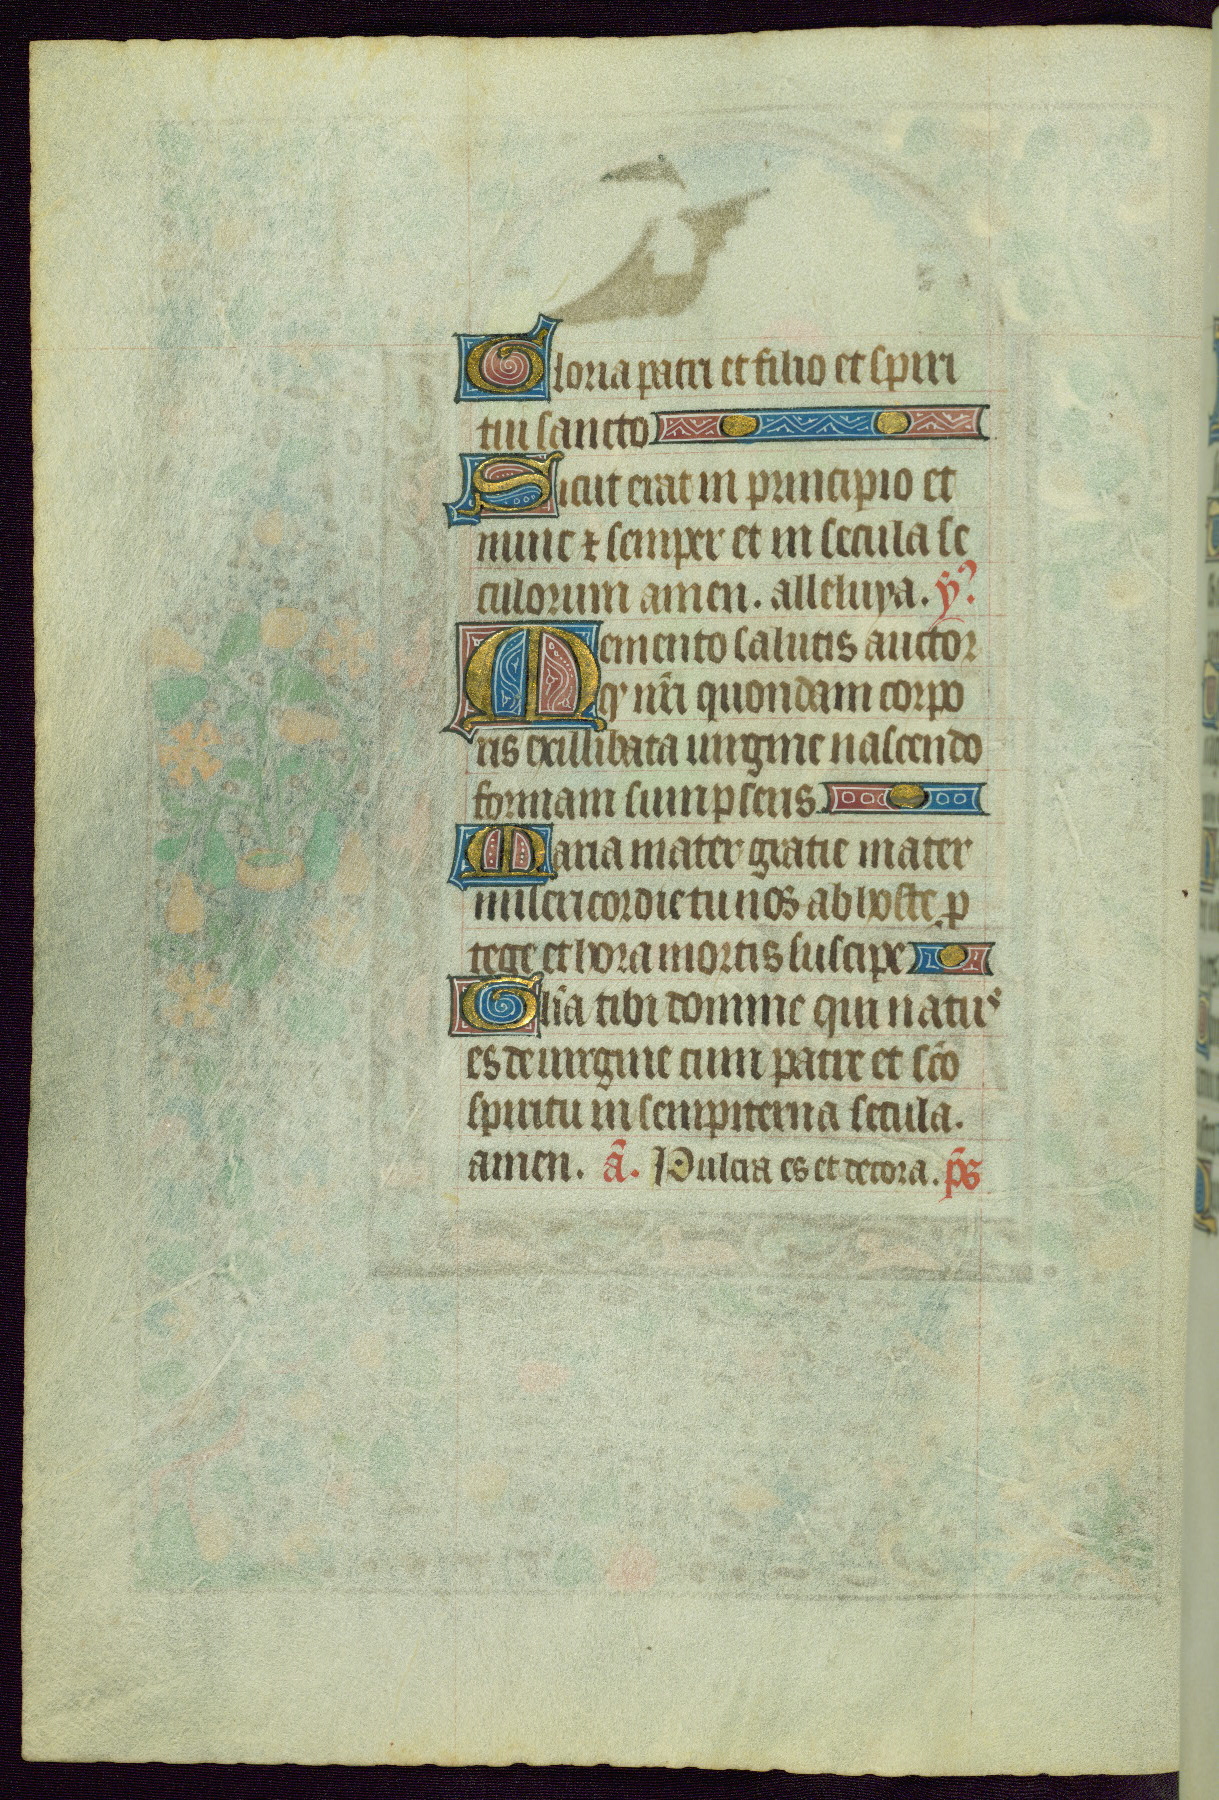 Gloria patri et filio et spiri
tui sancto
Sicut erat in principio et
nunc ⁊ semper et in secula se
culorum amen. alleluya. ỹ?
Memento salutis auctor
qꝰ nr̄i quondam corpo
ris ex illibata uirgine nascendo
formam sumpseris.
Maria mater gratie mater
misericordie tu nos ab hoste p
tege et hora mortis suscipe
Gl̄ia tibi domine qui natuˢ
es de uirgine cum patre et sc̄o
spiritu in sempiterna secula.
amen. ā. Pulcra es et decora. p̄s